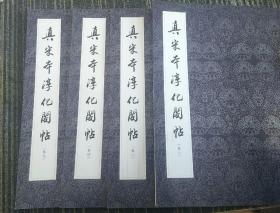 真宋本淳化閣帖
真宋本淳化閣帖
真宋本淳化閣帖
真宋本淳化閣帖